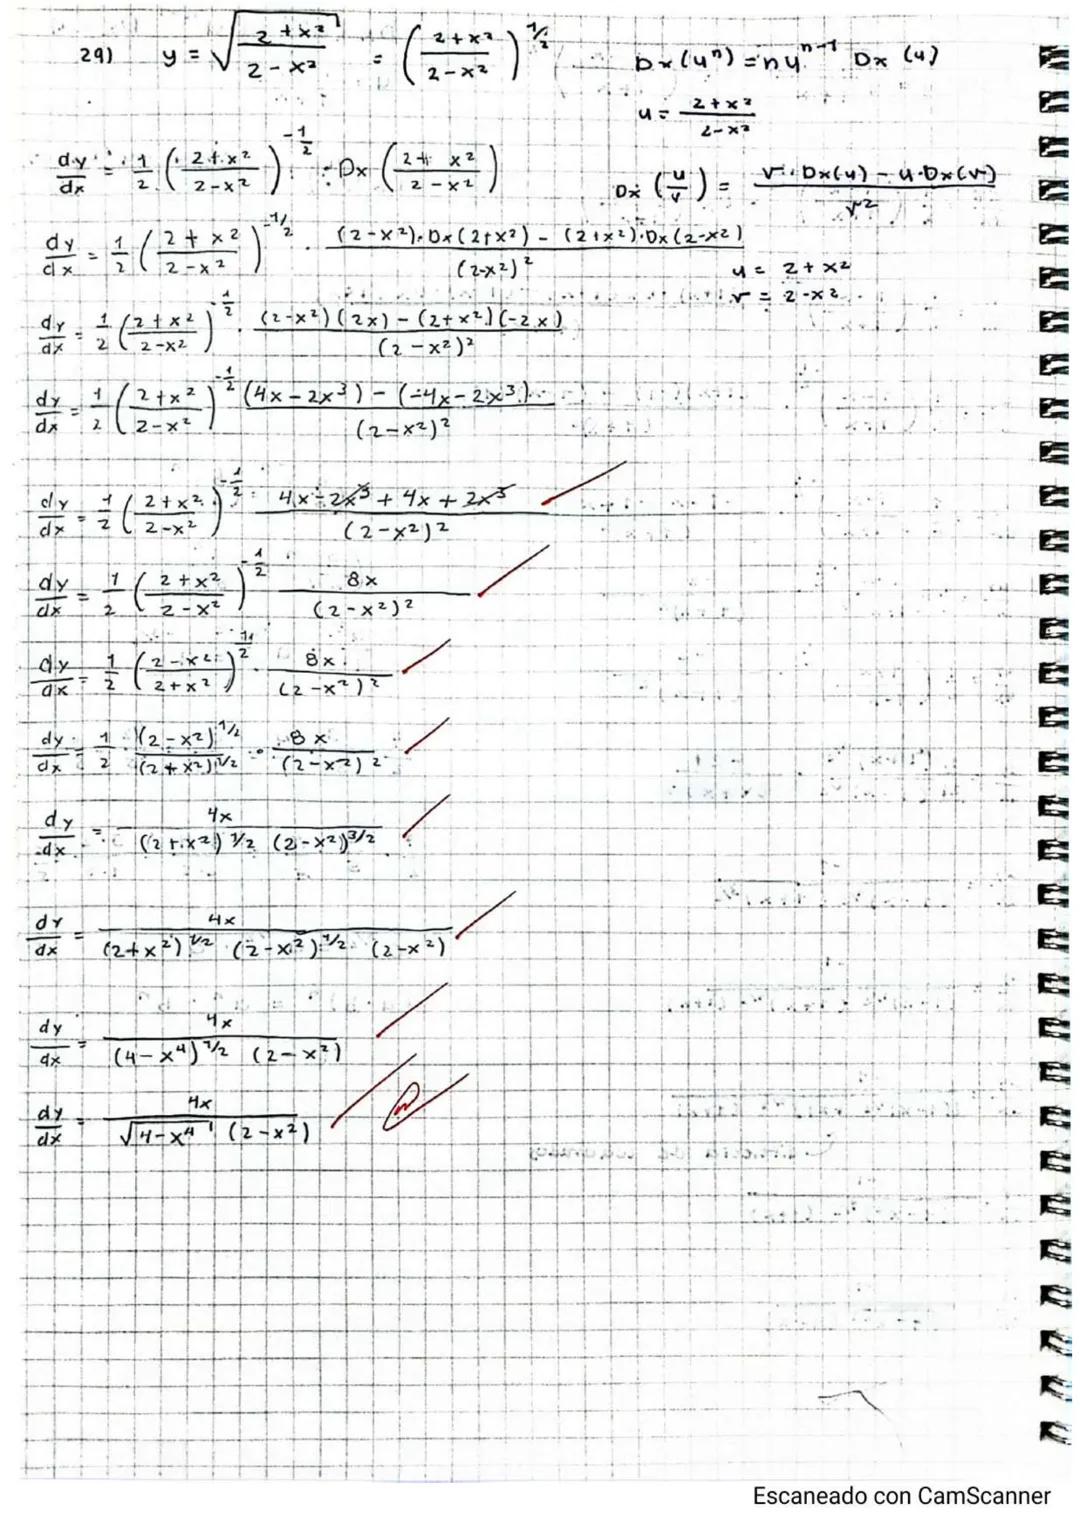 29) y = √((2+x²)/(2-x²)) = ((2+x²)/(2-x²))^(1/2)
Dx(uⁿ) = nuⁿ⁻¹ Dx (u)
u = (2+x²)/(2-x²)
dy/dx = 1/2 ((2+x²)/(2-x²))^(-1/2) · Dx ((2+x²)/(2-x²))
Dx (u/v) = (v·Dx(u) - u·Dx(v))/v²
dy/dx = 1/2 ((2+x²)/(2-x²))^(-1/2) · ((2-x²)·Dx(2+x²) - (2+x²)·Dx(2-x²))/(2-x²)²
u = 2+x²
v = 2-x²
dy/dx = 1/2 ((2+x²)/(2-x²))^(-1/2) · ((2-x²)(2x) - (2+x²)(-2x))/(2-x²)²
dy/dx = 1/2 ((2+x²)/(2-x²))^(-1/2) ((4x-2x³) - (-4x-2x³))/(2-x²)²
dy/dx = 1/2 ((2+x²)/(2-x²))^(-1/2) · (4x-2x³+4x+2x³)/(2-x²)²
dy/dx = 1/2 ((2+x²)/(2-x²))^(-1/2) 8x/(2-x²)²
dy/dx = 1/2 ((2-x²)/(2+x²))^(1/2) · 8x/(2-x²)²
dy/dx = 1/2 · (2-x²)^(1/2)/(2+x²)^(1/2) · 8x/(2-x²)²
dy/dx = 4x/((2+x²)^(1/2) (2-x²)^(3/2))
dy/dx = 4x/((2+x²)^(1/2) (2-x²)^(1/2) (2-x²))
dy/dx = 4x/((4-x⁴)^(1/2) (2-x²))
dy/dx = 4x/(√(4-x⁴) (2-x²))
Escaneado con CamScanner